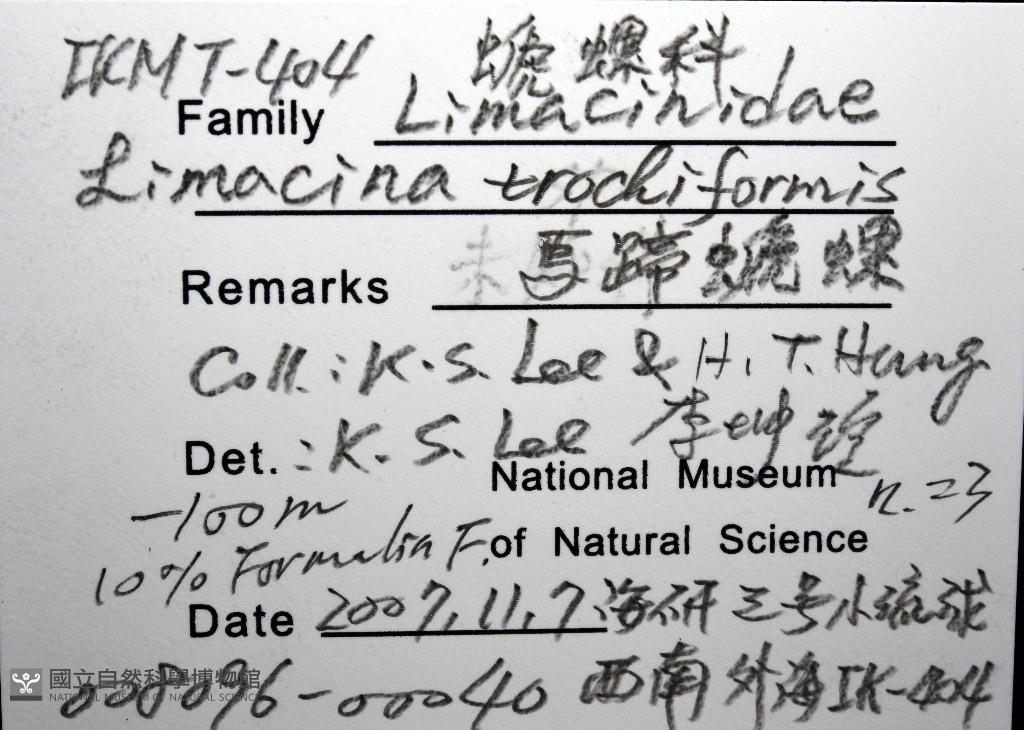 IKMT-404 螔螺科
Family Limacinidae
Limacina trochiformis
Remarks 馬蹄螔螺
Coll.: K.S. Lee & H.T. Hung
Det.: K.S. Lee 李坤瑄
National Museum n.=3
-100m
of Natural Science
10% Formalin F.
Date 2007.11.7 海研三号小琉球
西南外海IK-404
-00040
國立自然科學博物館
NATIONAL MUSEUM OF NATURAL SCIENCE